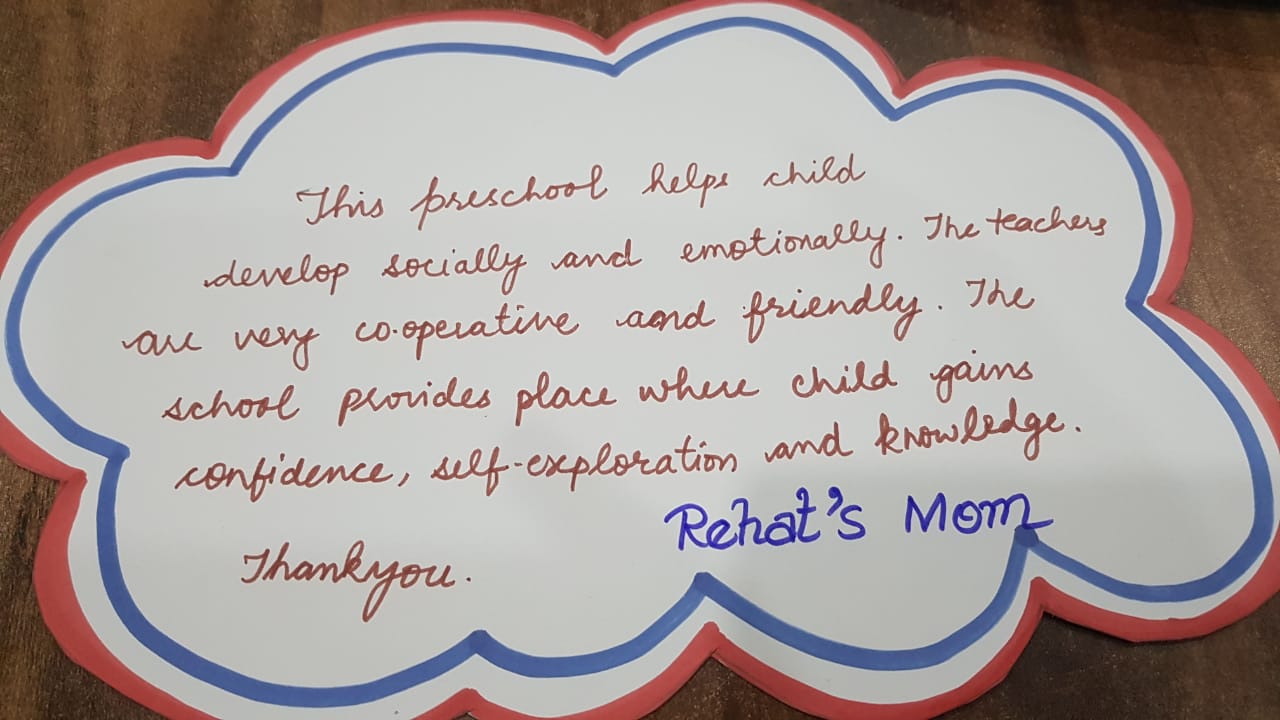 This preschool helps child
develop socially and emotionally. The teachers
are very co-operative and friendly. The
school provides place where child gains
confidence, self-exploration and knowledge.
Rehat's Mom
Thankyou.